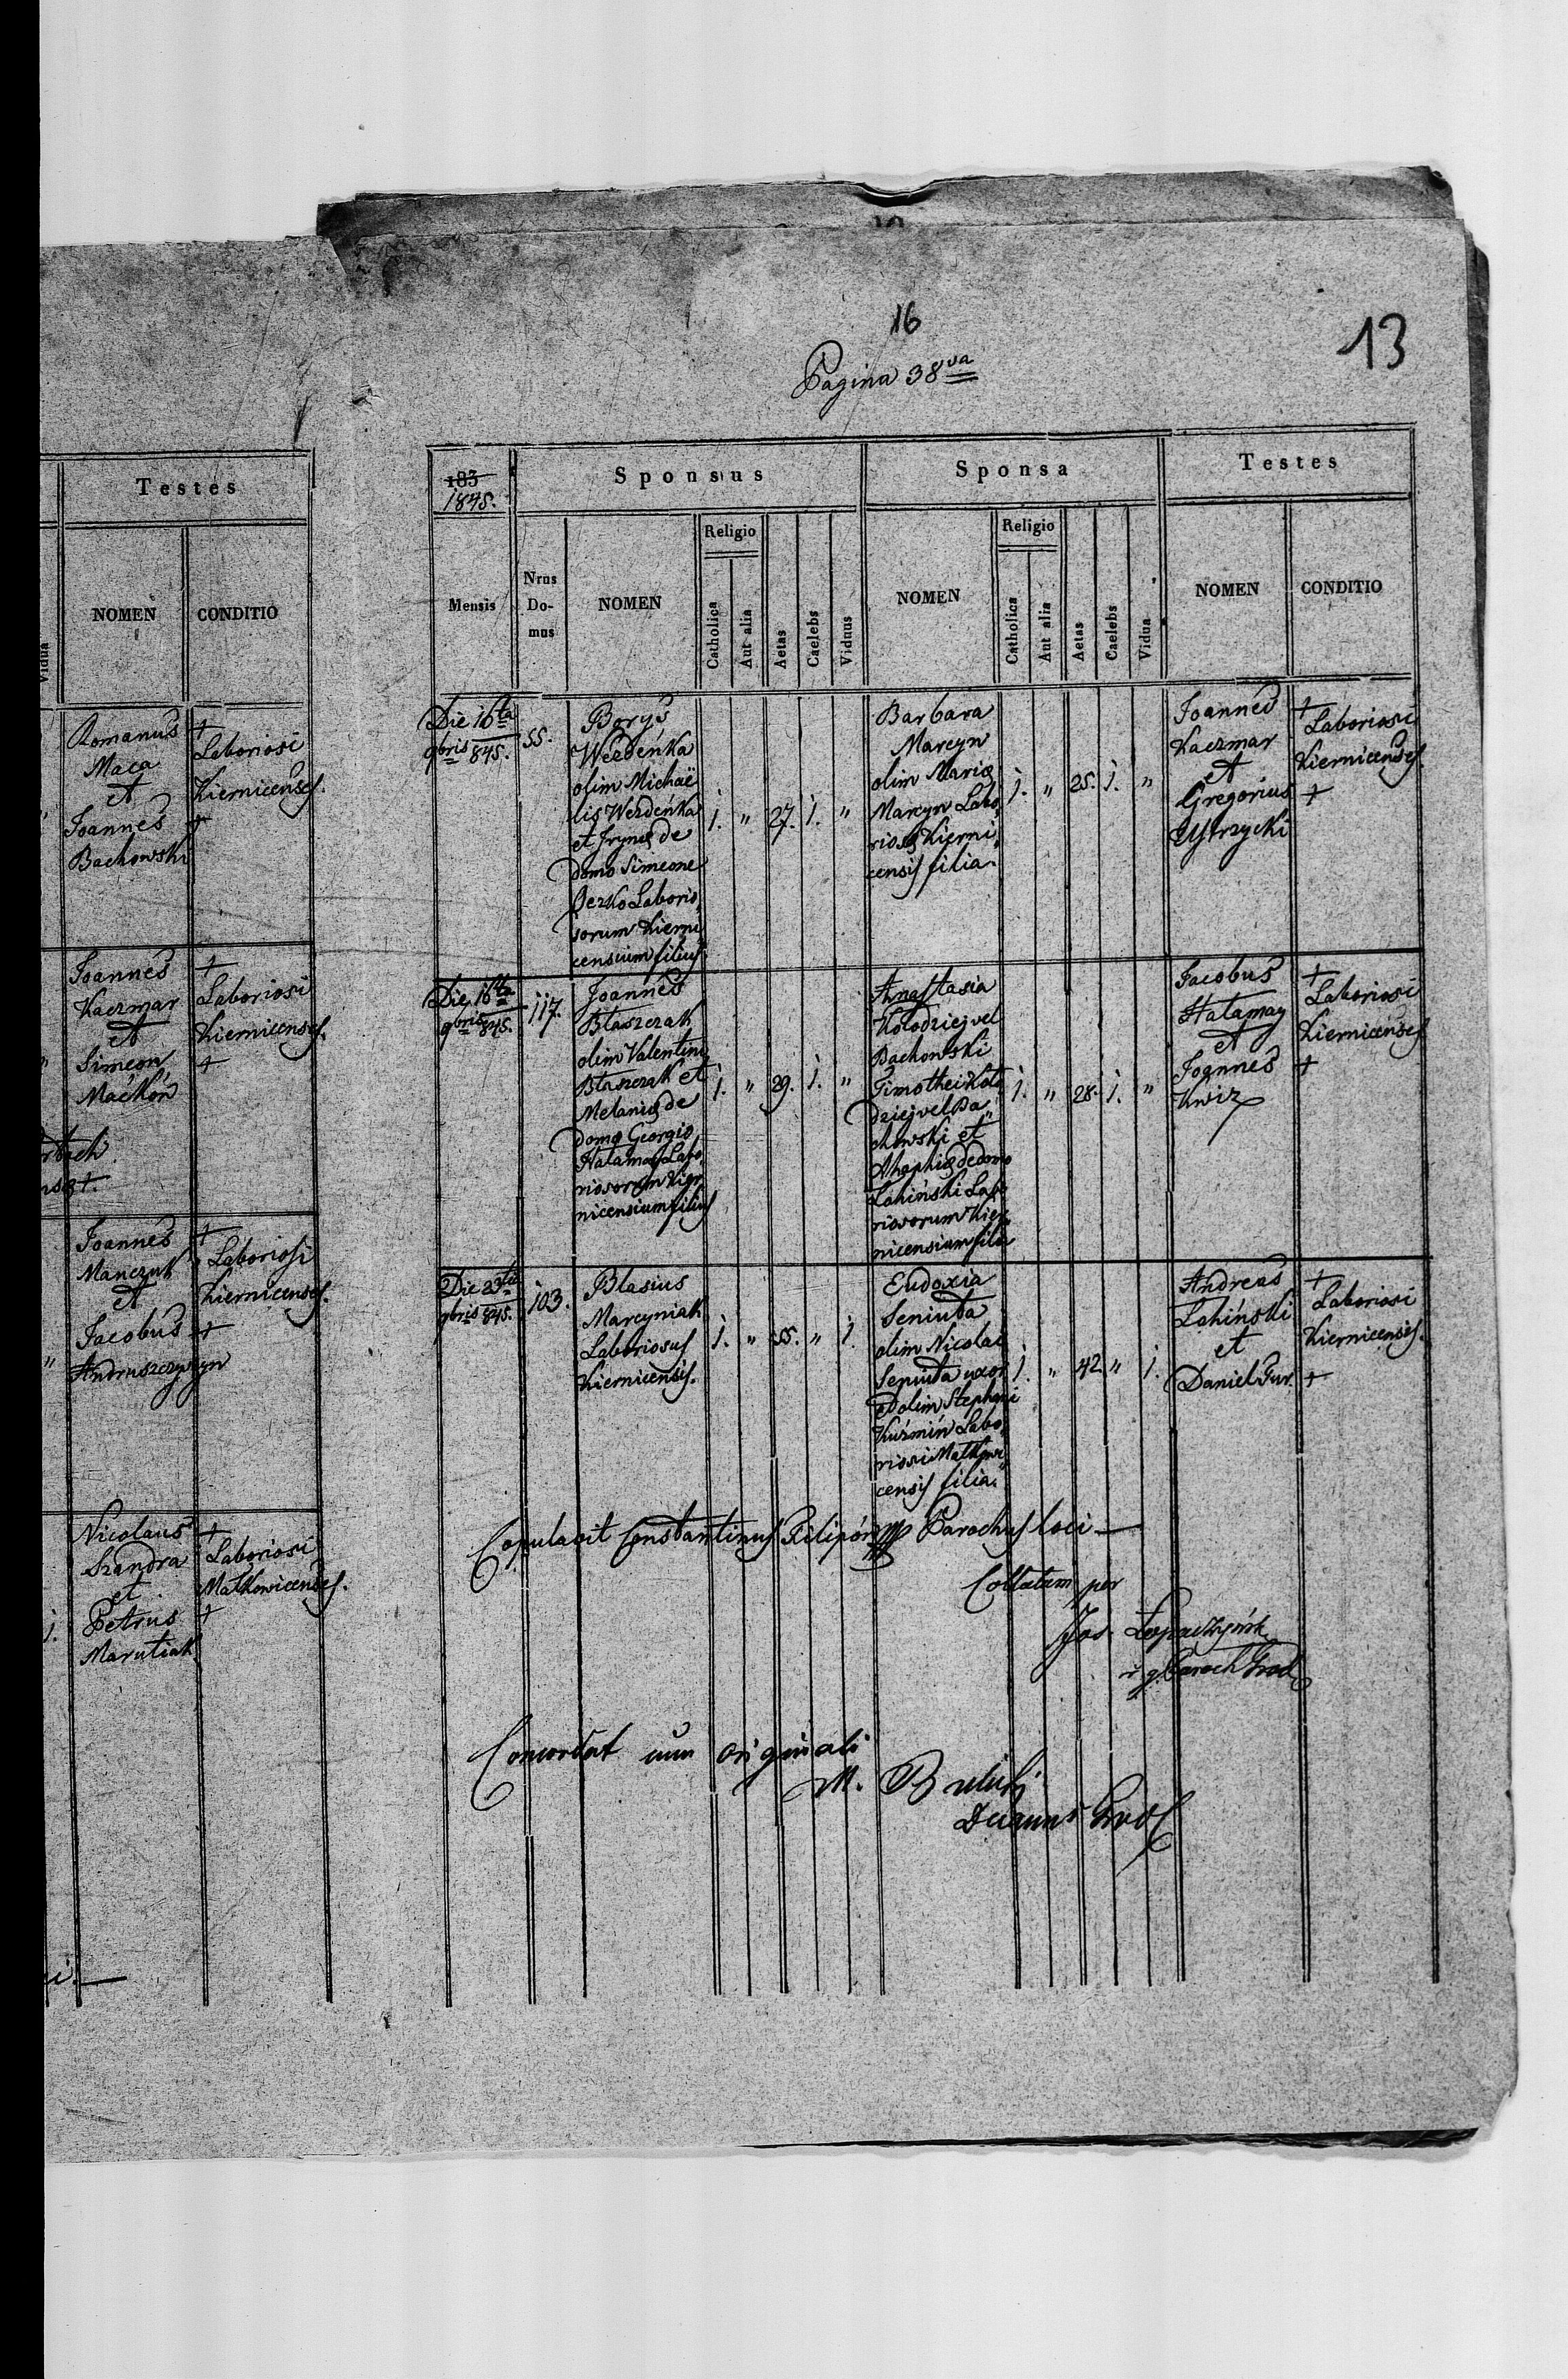 Testes
NOMEN
CONDITIO
Vidua
Romanus
Maca
et
Joannes
Bachowski
+
Laboriosi
Kiernicenses.
+
Joannes
Kaczmar
et
Simeon
Maćkon
+
Laboriosi
Kiernicenses.
+
Joannes
Manczuk
et
Jacobus
Andruszczyszyn
+
Laboriosi
Kiernicenses.
+
Nicolaus
Szandra
et
Petrus
Marutiak
+
Laboriosi
Małkowicenses.
+
16
13
Pagina 38va
183
1845.
Sponsus
Sponsa
Testes
Mensis
Nrus
Do-
mus
NOMEN
Religio
Catholica
Aut alia
Aetas
Caelebs
Viduus
NOMEN
Religio
Catholica
Aut alia
Aetas
Caelebs
Vidua
NOMEN
CONDITIO
Die 16ta
9bris 845.
55.
Boryś
Wezdeńka
olim Michaë
lis Wezdeńka
et Irynæ de
domo Simeone
Berko Laborio
sorum Kierni
censium filius
1. " 27. 1. "
Barbara
Marcyn
olim Mariæ
Marcyn Labo
riosæ Kierni
censis filia.
1. " 25. 1. "
Joannes
Kaczmar
et
Gregorius
Ustrzycki
+
Laboriosi
Kiernicenses.
+
Die 16ta
9bris 845.
117.
Joannes
Błaszczak
olim Valentini
Błaszczak et
Melaniæ de
domo Georgio
Hatamay Labo
riosorum Kier
nicensium filius
1. " 29. 1. "
Anastasia
Kołodziej vel
Bachowski
Timothei Koło
dziej vel Ba
chowski et
Ahaphiæ de domo
Lahiński Labo
riosorum Kier
nicensium filia
1. " 28. 1. "
Jacobus
Hatamay
et
Joannes
Kwiz
+
Laboriosi
Kiernicenses
+
Die 23tia
9bris 845.
103.
Blasius
Marcyniak
Laboriosus
Kiernicensis.
1. " 55. " 1.
Eudoxia
Seniuta
olim Nicolai
Seniuta uxor
et olim Stephani
Kuźmin Labo
riosi Małkowi
censis filia.
1. " 42 " 1.
Andreas
Lahiński
et
Daniel Gur.
+
Laboriosi
Kiernicensis.
+
Copulavit Constantinus Parochus loci
Collatum per
Jos. Łopaczyński
Concordat cum originali
M.